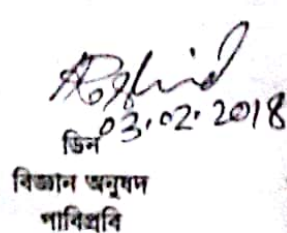 03.02.2018
ডিন
বিজ্ঞান অনুষদ
পাবিপ্রবি